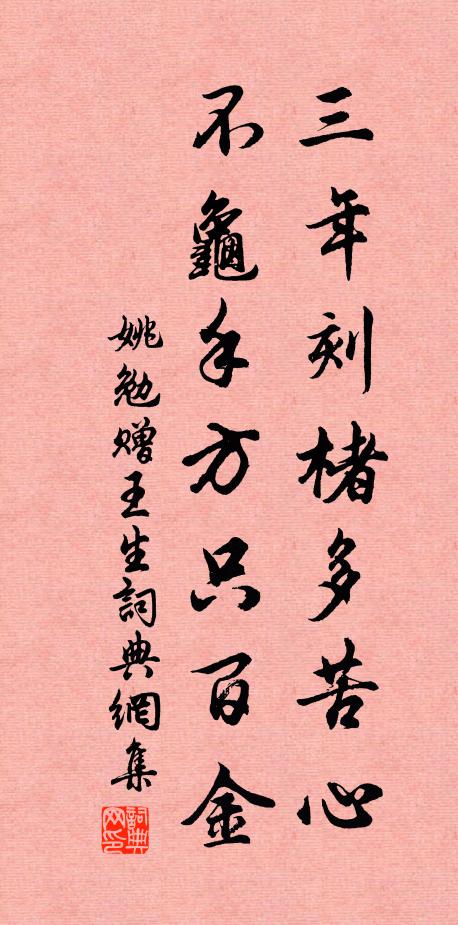 三年刻楮多苦心
不龜手方只百金
姚勉赠王生詞典網集
詞典网印